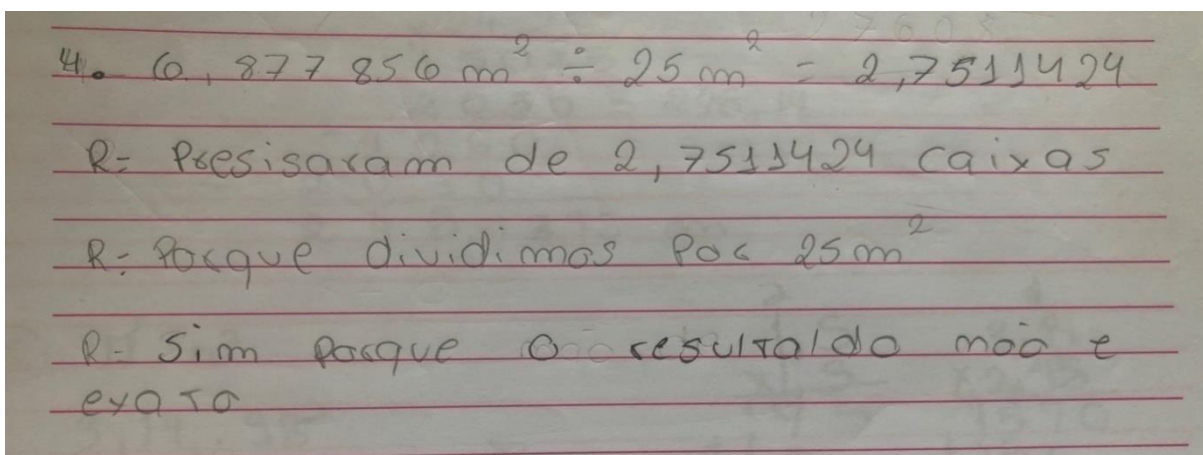 4. 6,877856m² ÷ 25m² = 2,7511424
R= Presisaram de 2,7511424 caixas
R= Porque dividimos Por 25m²
R- Sim porque o resultaldo não e
exato